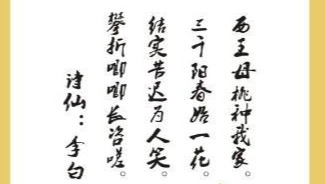 西王母桃种我家。
三千阳春始一花。
结实苦迟为人笑。
攀折唧唧长咨嗟。
诗仙：李白